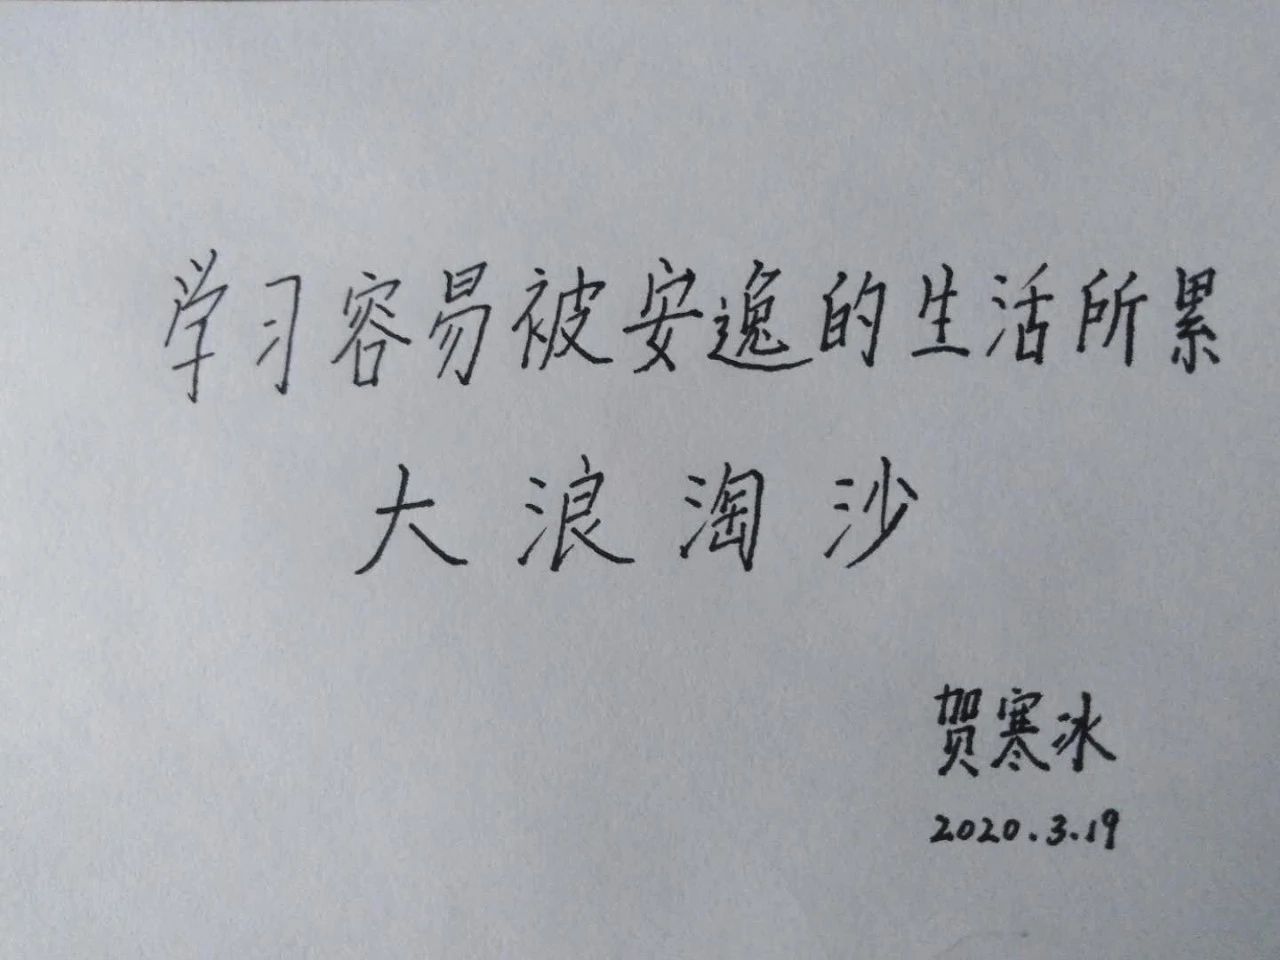 学习容易被安逸的生活所累
大浪淘沙
贺寒冰
2020.3.19